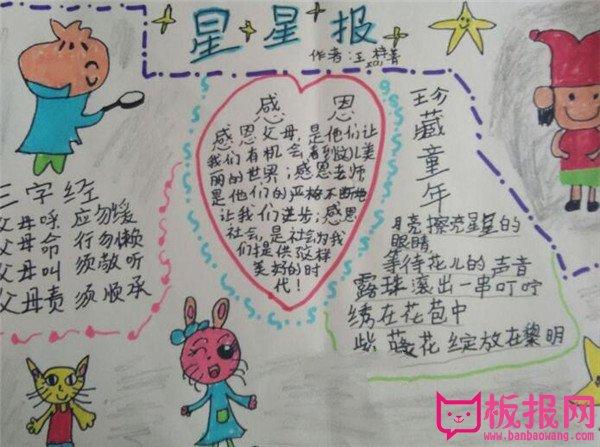 星星报
作者：王
感恩
感恩父母，是他们让
我们有机会，看到如此美
丽的世界；感恩老师
是他们的严格不断地
让我们进步；感恩
社会，是社会为我
们提供这样
美好的时
代！
三字经
父母呼 应勿缓
父母命 行勿懒
父母叫 须敬听
父母责 须顺承
珍藏童年
月亮擦亮星星的
眼睛
等待花儿的声音
露珠滚出一串叮咛
绣在花苞中
紫花绽放在黎明
板报网
www.banbaowang.com